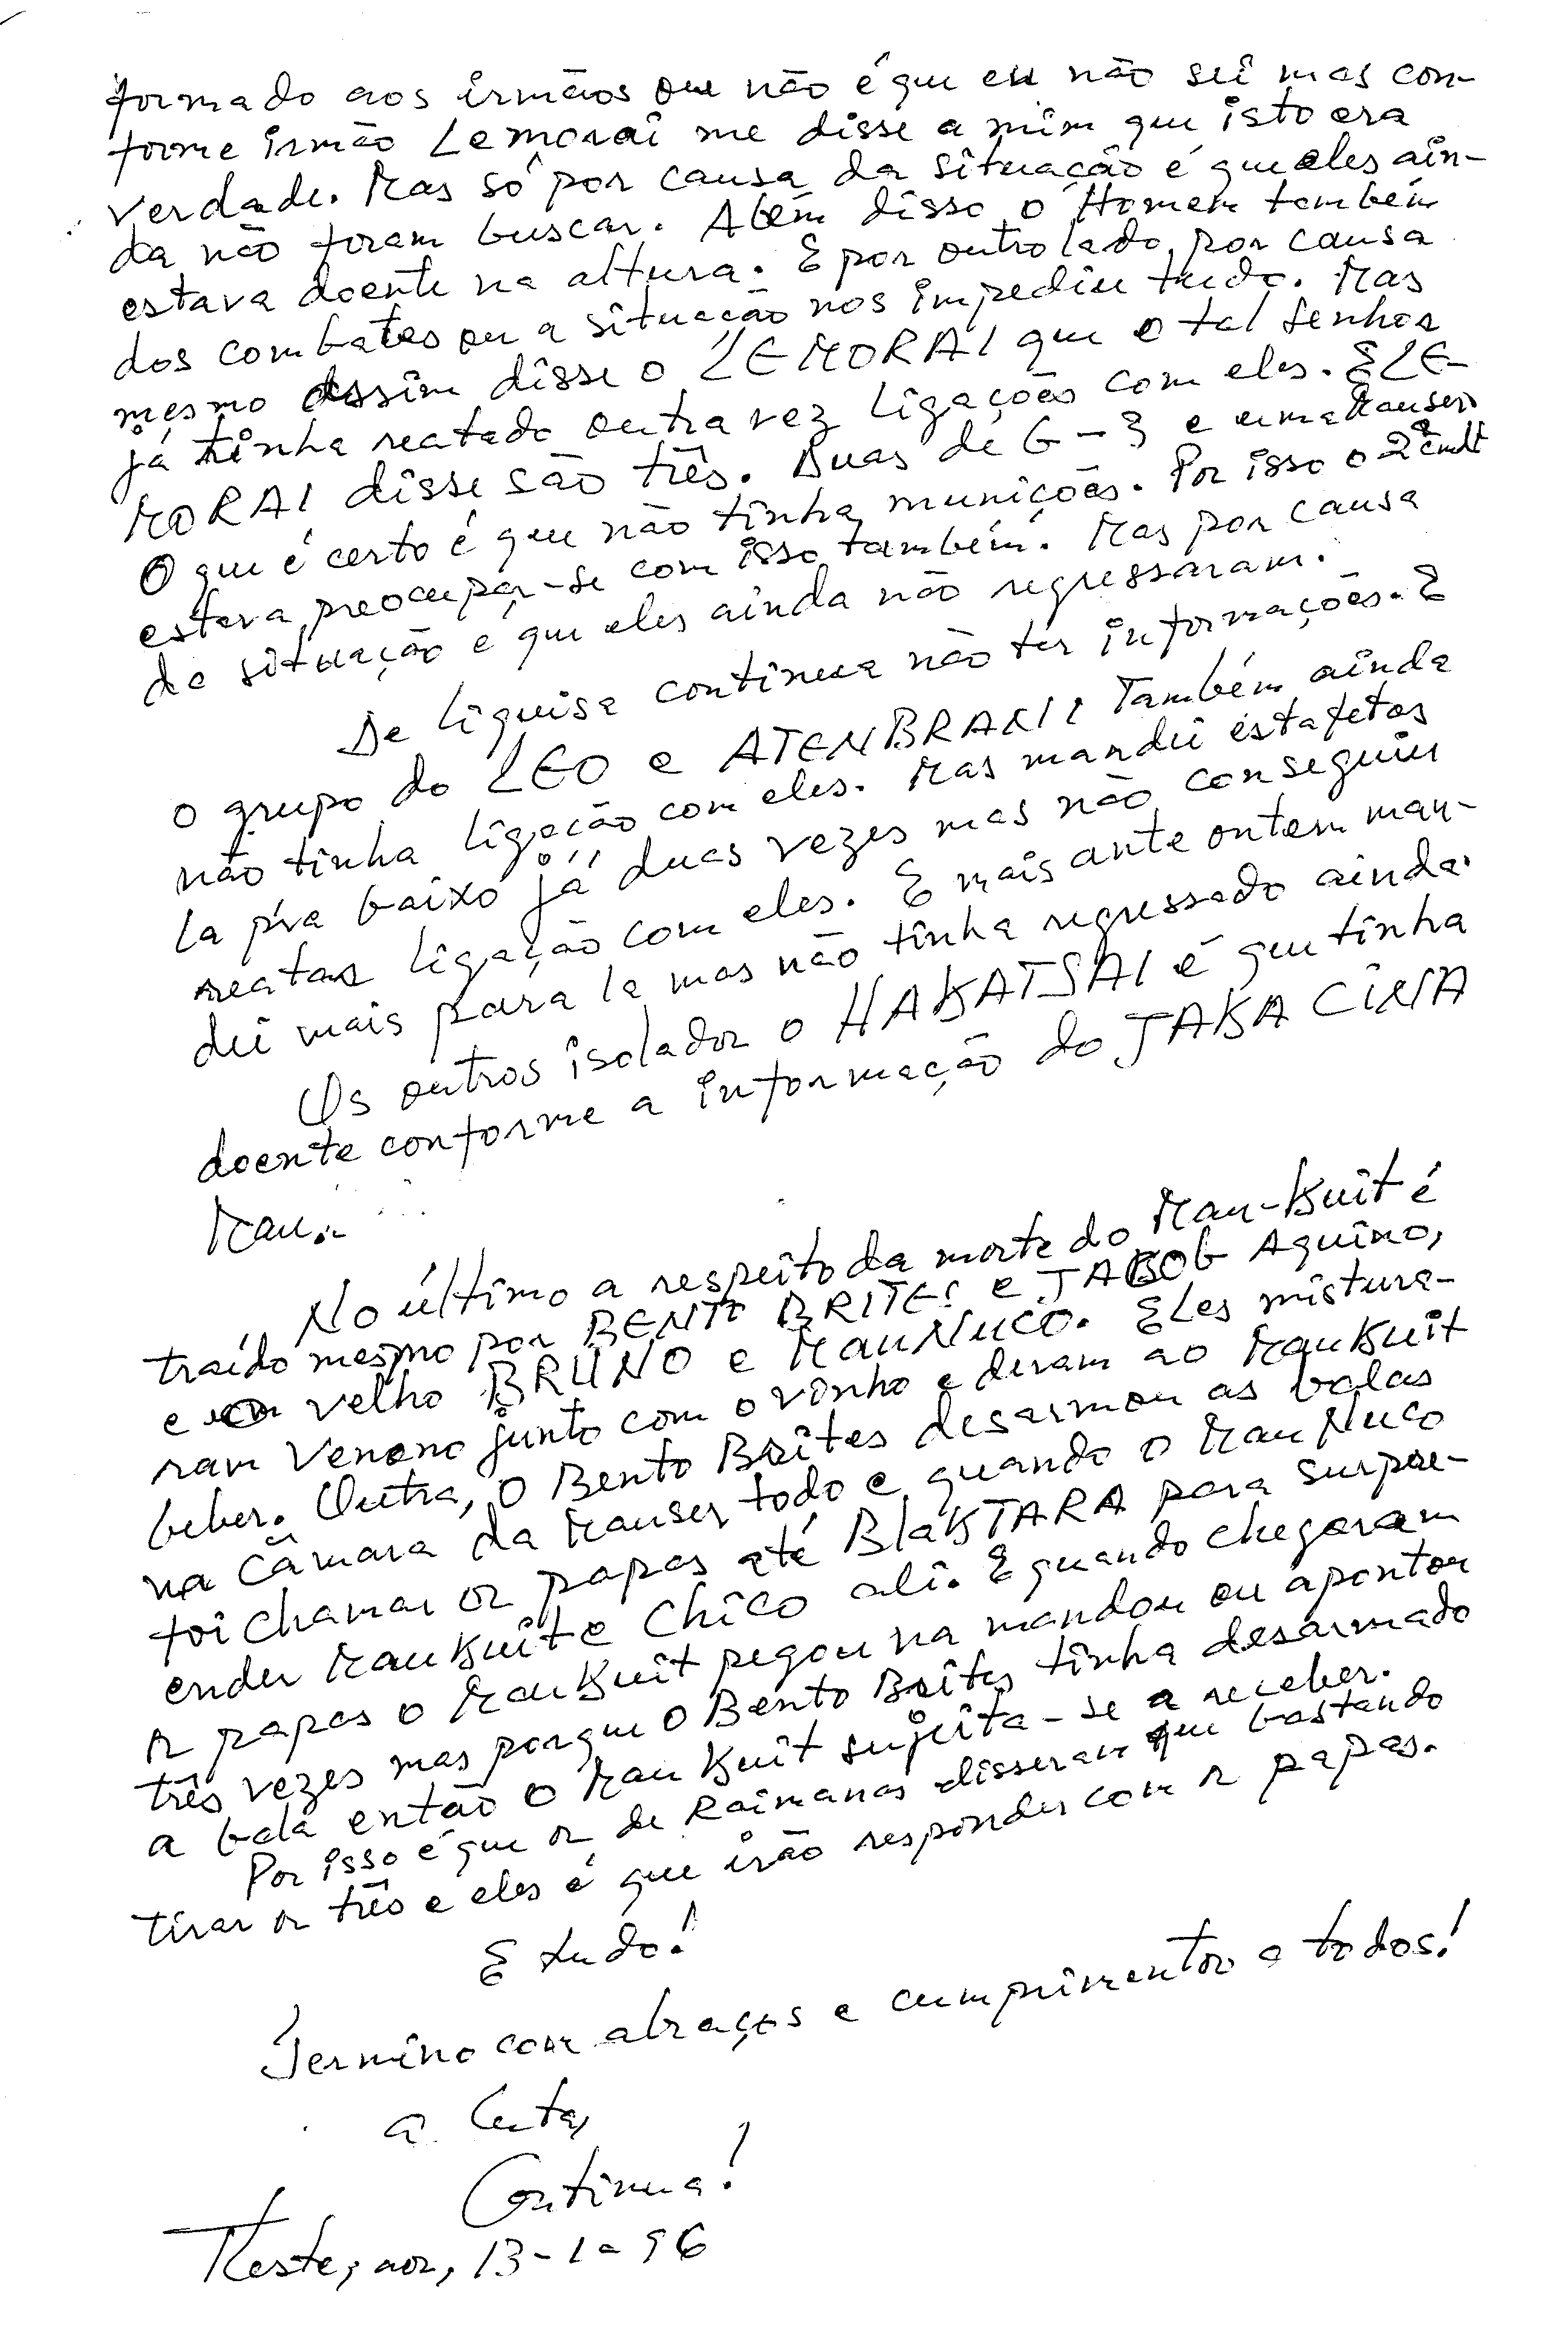 formado aos irmãos que não é que eu não sei mas con-
forme irmão Lemorai me disse a mim que isto era
verdade. Mas só por causa da situação é que eles ain-
da não foram buscar. Além disso o Homem também
estava doente na altura. E por outro lado, por causa
dos combates ou a situação nos impediu tudo. Mas
mesmo assim disse o LEMORAI que o tal senhor
já tinha reatado outra vez ligações com eles. ELE-
MORAI disse são três. Duas de G-3 e uma Mauser.
O que é certo é que não tinha munições. Por isso o 2º cmdt
estava preocupar-se com isso também. Mas por causa
da situação é que eles ainda não regressaram.
De Liquisa continua não ter informações. E
o grupo do LEO e ATENBRAKI! Também ainda
não tinha ligação com eles. Mas mandei estafetas
la p'ra baixo já duas vezes mas não conseguiu
reatar ligação com eles. E mais ante ontem man-
dei mais para la mas não tinha regressado ainda.
Os outros isolados o HAKATSAI é que tinha
doente conforme a informação do JAKA CINA
Mau..
No último a respeito da morte do Mau-Kuit é
traído mesmo por BENTO BRITES e JACOB Aquino,
e velho BRUNO e MAUNUCO. Eles mistura-
ram veneno junto com o vinho e deram ao MauKuit
beber. Outra, o Bento Brites desarmou as balas
na câmara da Mauser todo e quando o Mau Nuco
foi chamar os papas até BlakTARA para surpre-
ender MauKuit e Chico ali. E quando chegaram
os papas o MauKuit pegou na mandou ou apontou
três vezes mas porque o Bento Brites tinha desarmado
a bala então o Mau Kuit sujeita-se a receber.
Por isso é que os de Raimanas disseram que bastando
tirar os três e eles é que irão responder com os papas.
E tudo!
Termino com abraços e cumprimentos a todos!
a Luta,
Continua!
Leste, aos, 13-1-96